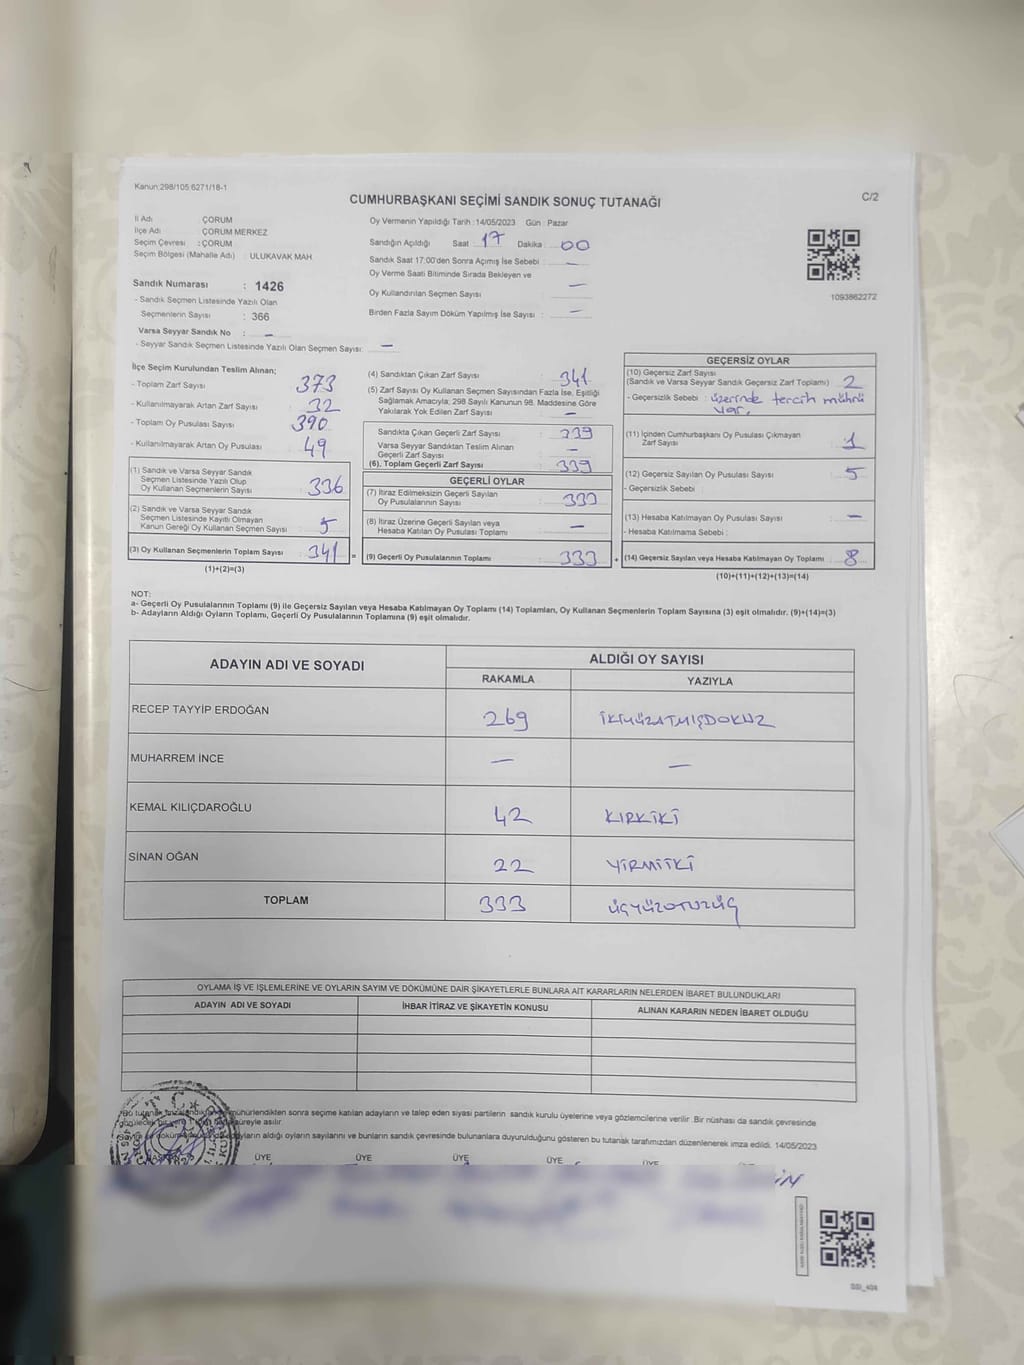 Kanun:298/105 6271/18-1
CUMHURBAŞKANI SEÇİMİ SANDIK SONUÇ TUTANAĞI
C/2
İl Adı ÇORUM
İlçe Adı : ÇORUM MERKEZ
Seçim Çevresi : ÇORUM
Seçim Bölgesi (Mahalle Adı) : ULUKAVAK MAH
Sandık Numarası : 1426
- Sandık Seçmen Listesinde Yazılı Olan
Seçmenlerin Sayısı : 366
Varsa Seyyar Sandık No : –
- Seyyar Sandık Seçmen Listesinde Yazılı Olan Seçmen Sayısı: –
Oy Vermenin Yapıldığı Tarih : 14/05/2023 Gün : Pazar
Sandığın Açıldığı Saat 17 Dakika 00
Sandık Saat 17:00'den Sonra Açmış İse Sebebi : –
Oy Verme Saati Bitiminde Sırada Bekleyen ve
Oy Kullandırılan Seçmen Sayısı –
Birden Fazla Sayım Döküm Yapılmış İse Sayısı : –
1093862272
İlçe Seçim Kurulundan Teslim Alınan;
- Toplam Zarf Sayısı 373
- Kullanılmayarak Artan Zarf Sayısı : 32
- Toplam Oy Pusulası Sayısı : 390
- Kullanılmayarak Artan Oy Pusulası : 49
(1) Sandık ve Varsa Seyyar Sandık
Seçmen Listesinde Yazılı Olup
Oy Kullanan Seçmenlerin Sayısı : 336
(2) Sandık ve Varsa Seyyar Sandık
Seçmen Listesinde Kayıtlı Olmayan
Kanun Gereği Oy Kullanan Seçmen Sayısı : 5
(3) Oy Kullanan Seçmenlerin Toplam Sayısı : 341
(1)+(2)=(3)
(4) Sandıktan Çıkan Zarf Sayısı : 341
(5) Zarf Sayısı Oy Kullanan Seçmen Sayısından Fazla İse, Eşitliği
Sağlamak Amacıyla; 298 Sayılı Kanunun 98. Maddesine Göre
Yakılarak Yok Edilen Zarf Sayısı : –
Sandıkta Çıkan Geçerli Zarf Sayısı : 339
Varsa Seyyar Sandıktan Teslim Alınan
Geçerli Zarf Sayısı : –
(6). Toplam Geçerli Zarf Sayısı : 339
GEÇERLİ OYLAR
(7) İtiraz Edilmeksizin Geçerli Sayılan
Oy Pusulalarının Sayısı : 333
(8) İtiraz Üzerine Geçerli Sayılan veya
Hesaba Katılan Oy Pusulası Toplamı : –
(9) Geçerli Oy Pusulalarının Toplamı : 333
GEÇERSİZ OYLAR
(10) Geçersiz Zarf Sayısı
(Sandık ve Varsa Seyyar Sandık Geçersiz Zarf Toplamı) : 2
- Geçersizlik Sebebi : üzerinde tercih mührü
var.
(11) İçinden Cumhurbaşkanı Oy Pusulası Çıkmayan
Zarf Sayısı : 1
(12) Geçersiz Sayılan Oy Pusulası Sayısı : 5
- Geçersizlik Sebebi :
(13) Hesaba Katılmayan Oy Pusulası Sayısı : –
- Hesaba Katılmama Sebebi :
(14) Geçersiz Sayılan veya Hesaba Katılmayan Oy Toplamı : 8
(10)+(11)+(12)+(13)=(14)
NOT:
a- Geçerli Oy Pusulalarının Toplamı (9) ile Geçersiz Sayılan veya Hesaba Katılmayan Oy Toplamı (14) Toplamları, Oy Kullanan Seçmenlerin Toplam Sayısına (3) eşit olmalıdır. (9)+(14)=(3)
b- Adayların Aldığı Oyların Toplamı, Geçerli Oy Pusulalarının Toplamına (9) eşit olmalıdır.
ADAYIN ADI VE SOYADI ALDIĞI OY SAYISI
RAKAMLA YAZIYLA
RECEP TAYYİP ERDOĞAN 269 İKİYÜZATMIŞDOKUZ
MUHARREM İNCE – –
KEMAL KILIÇDAROĞLU 42 KIRKİKİ
SİNAN OĞAN 22 YİRMİİKİ
TOPLAM 333 ÜÇYÜZOTUZÜÇ
OYLAMA İŞ VE İŞLEMLERİNE VE OYLARIN SAYIM VE DÖKÜMÜNE DAİR ŞİKAYETLERLE BUNLARA AİT KARARLARIN NELERDEN İBARET BULUNDUKLARI
ADAYIN ADI VE SOYADI İHBAR İTİRAZ VE ŞİKAYETİN KONUSU ALINAN KARARIN NEDEN İBARET OLDUĞU
mühürlendikten sonra seçime katılan adayların ve talep eden siyasi partilerin sandık kurulu üyelerine veya gözlemcilerine verilir. Bir nüshası da sandık çevresinde
süreyle asılır
adayların aldığı oyların sayılarını ve bunların sandık çevresinde bulunanlara duyurulduğunu gösteren bu tutanak tarafımızdan düzenlenerek imza edildi. 14/05/2023
ÜYE ÜYE ÜYE ÜYE ÜYE